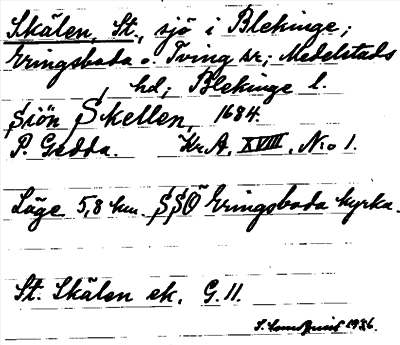 Skälen, St., sjö i Blekinge;
Eringsboda o. Tving sr; Medelstads
hd; Blekinge l.
Siön Skellen, 1684.
P. Gedda. Kr.A. XVIII. N:o 1.
Läge 5,8 km. SSÖ Eringsboda kyrka.
St. Skälen ek. G. 11.
1936.